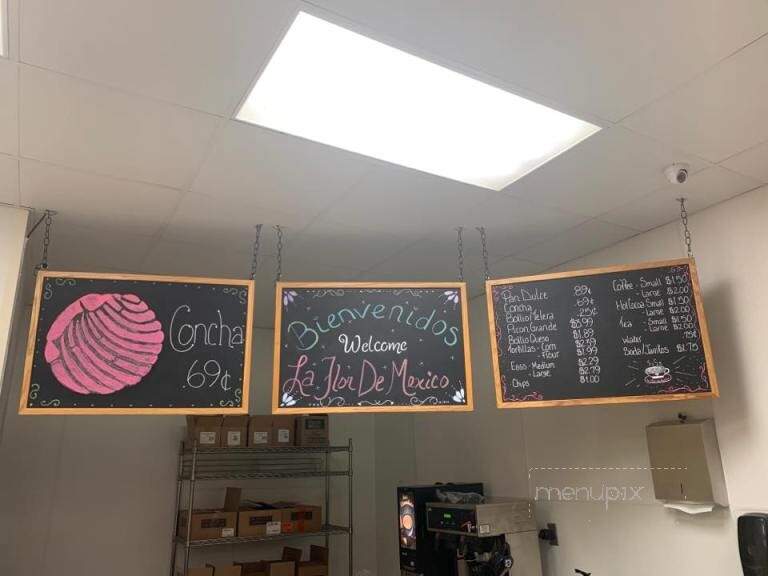 Concha
.69¢
Bienvenidos
Welcome
La Flor De Mexico
Pan Dulce .89¢
Concha .69¢
Bolillo/Telera .25¢
Picon Grande $3.99
Bolillo Queso $1.89
Tortillas - Corn $2.39
- Flour $1.99
Eggs - Medium $2.29
- Large $2.79
Chips $1.00
Coffee - Small $1.50
- Large $2.00
- Small $1.50
- Large $2.00
Tea - Small $1.50
- Large $2.00
Water
Soda/Jarritos $2.75
menupix